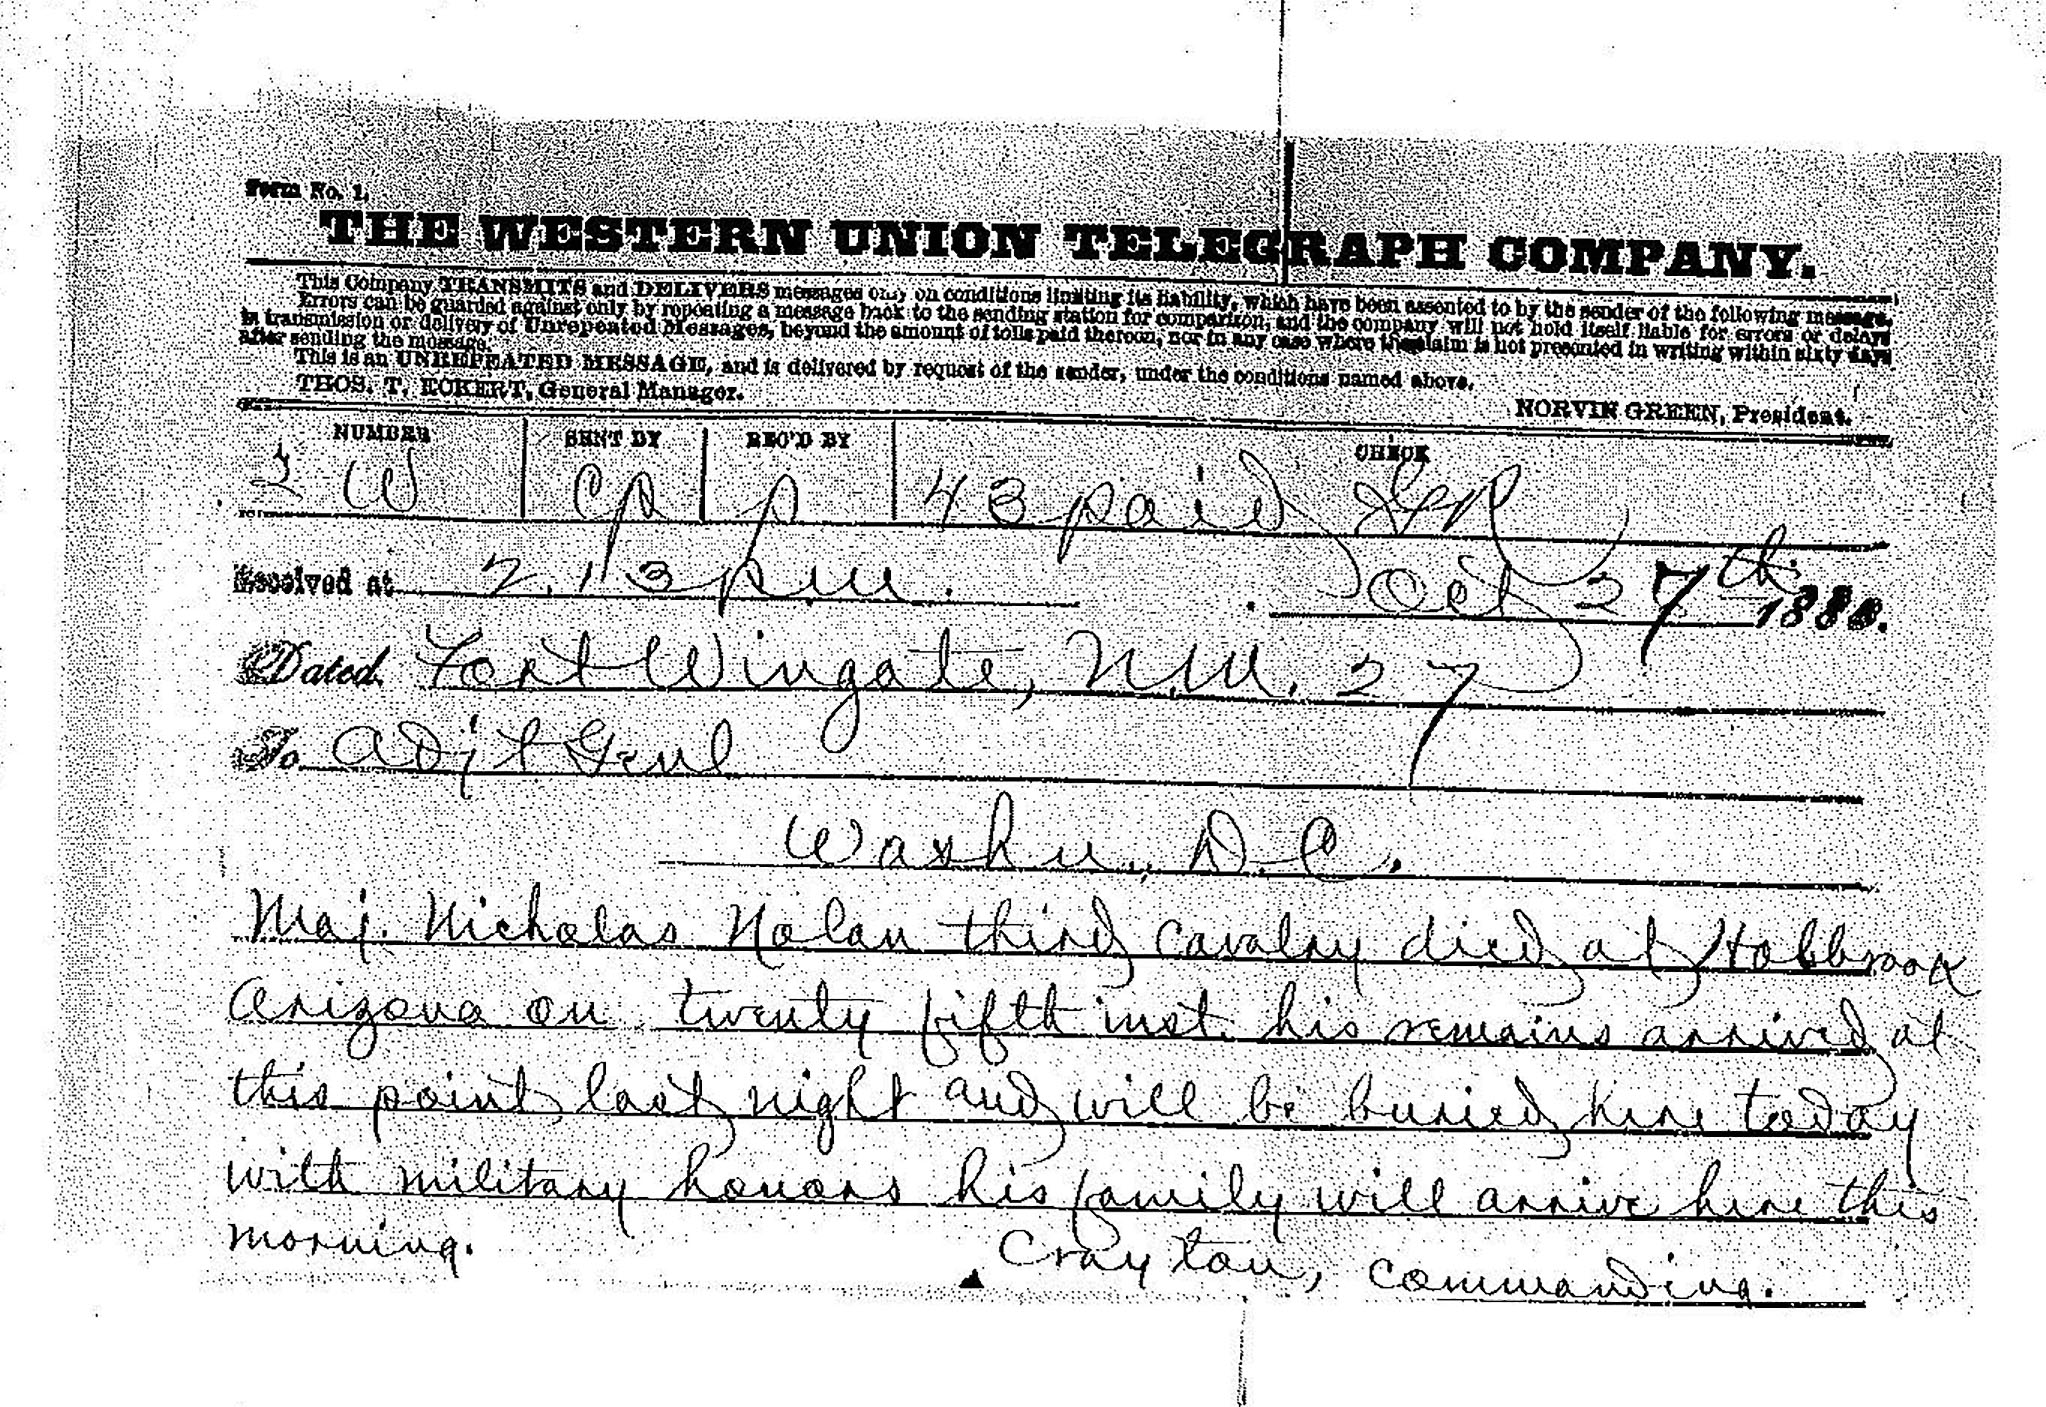 Form No. 1.
THE WESTERN UNION TELEGRAPH COMPANY.
This Company TRANSMITS and DELIVERS messages only on conditions limiting its liability, which have been assented to by the sender of the following message.
Errors can be guarded against only by repeating a message back to the sending station for comparison, and the company will not hold itself liable for errors or delays
in transmission or delivery of Unrepeated Messages, beyond the amount of tolls paid thereon, nor in any case where the claim is not presented in writing within sixty days
after sending the message.
This is an UNREPEATED MESSAGE, and is delivered by request of the sender, under the conditions named above.
THOS. T. ECKERT, General Manager. NORVIN GREEN, President.
NUMBER SENT BY REC'D BY CHECK
2 W Cp p 43 paid
Received at 2.13 pm. Oct 27th 188
Dated Fort Wingate, N.M. 27
To Adjt Genl
Washn, D.C.
Maj. Nicholas Nolan third cavalry died at Holbrook
Arizona on twenty fifth inst. his remains arrived at
this point last night and will be buried here today
with military honors his family will arrive here this
morning. Crayton, commanding.